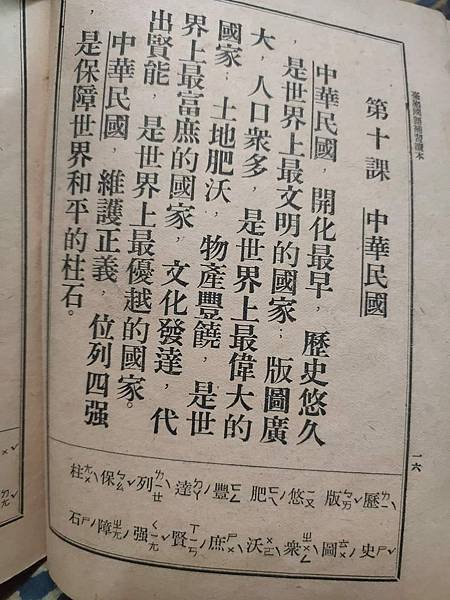 第十課　中華民國
中華民國，開化最早，歷史悠久
，是世界上最文明的國家；版圖廣
大，人口衆多，是世界上最偉大的
國家；土地肥沃，物產豐饒，是世
界上最富庶的國家，文化發達，代
出賢能，是世界上最優越的國家。
中華民國，維護正義，位列四强
，是保障世界和平的柱石。
歷ㄌㄧˋ 史ㄕˇ
版ㄅㄢˇ 圖ㄊㄨˊ
悠ㄧㄡ 衆ㄓㄨㄥˋ
肥ㄈㄟˊ 沃ㄨㄛˋ
豐ㄈㄥ 庶ㄕㄨˋ
達ㄉㄚˊ 賢ㄒㄧㄢˊ
列ㄌㄧㄝˋ 强ㄑㄧㄤˊ
保ㄅㄠˇ 障ㄓㄤˋ
柱ㄓㄨˋ 石ㄕˊ
一六